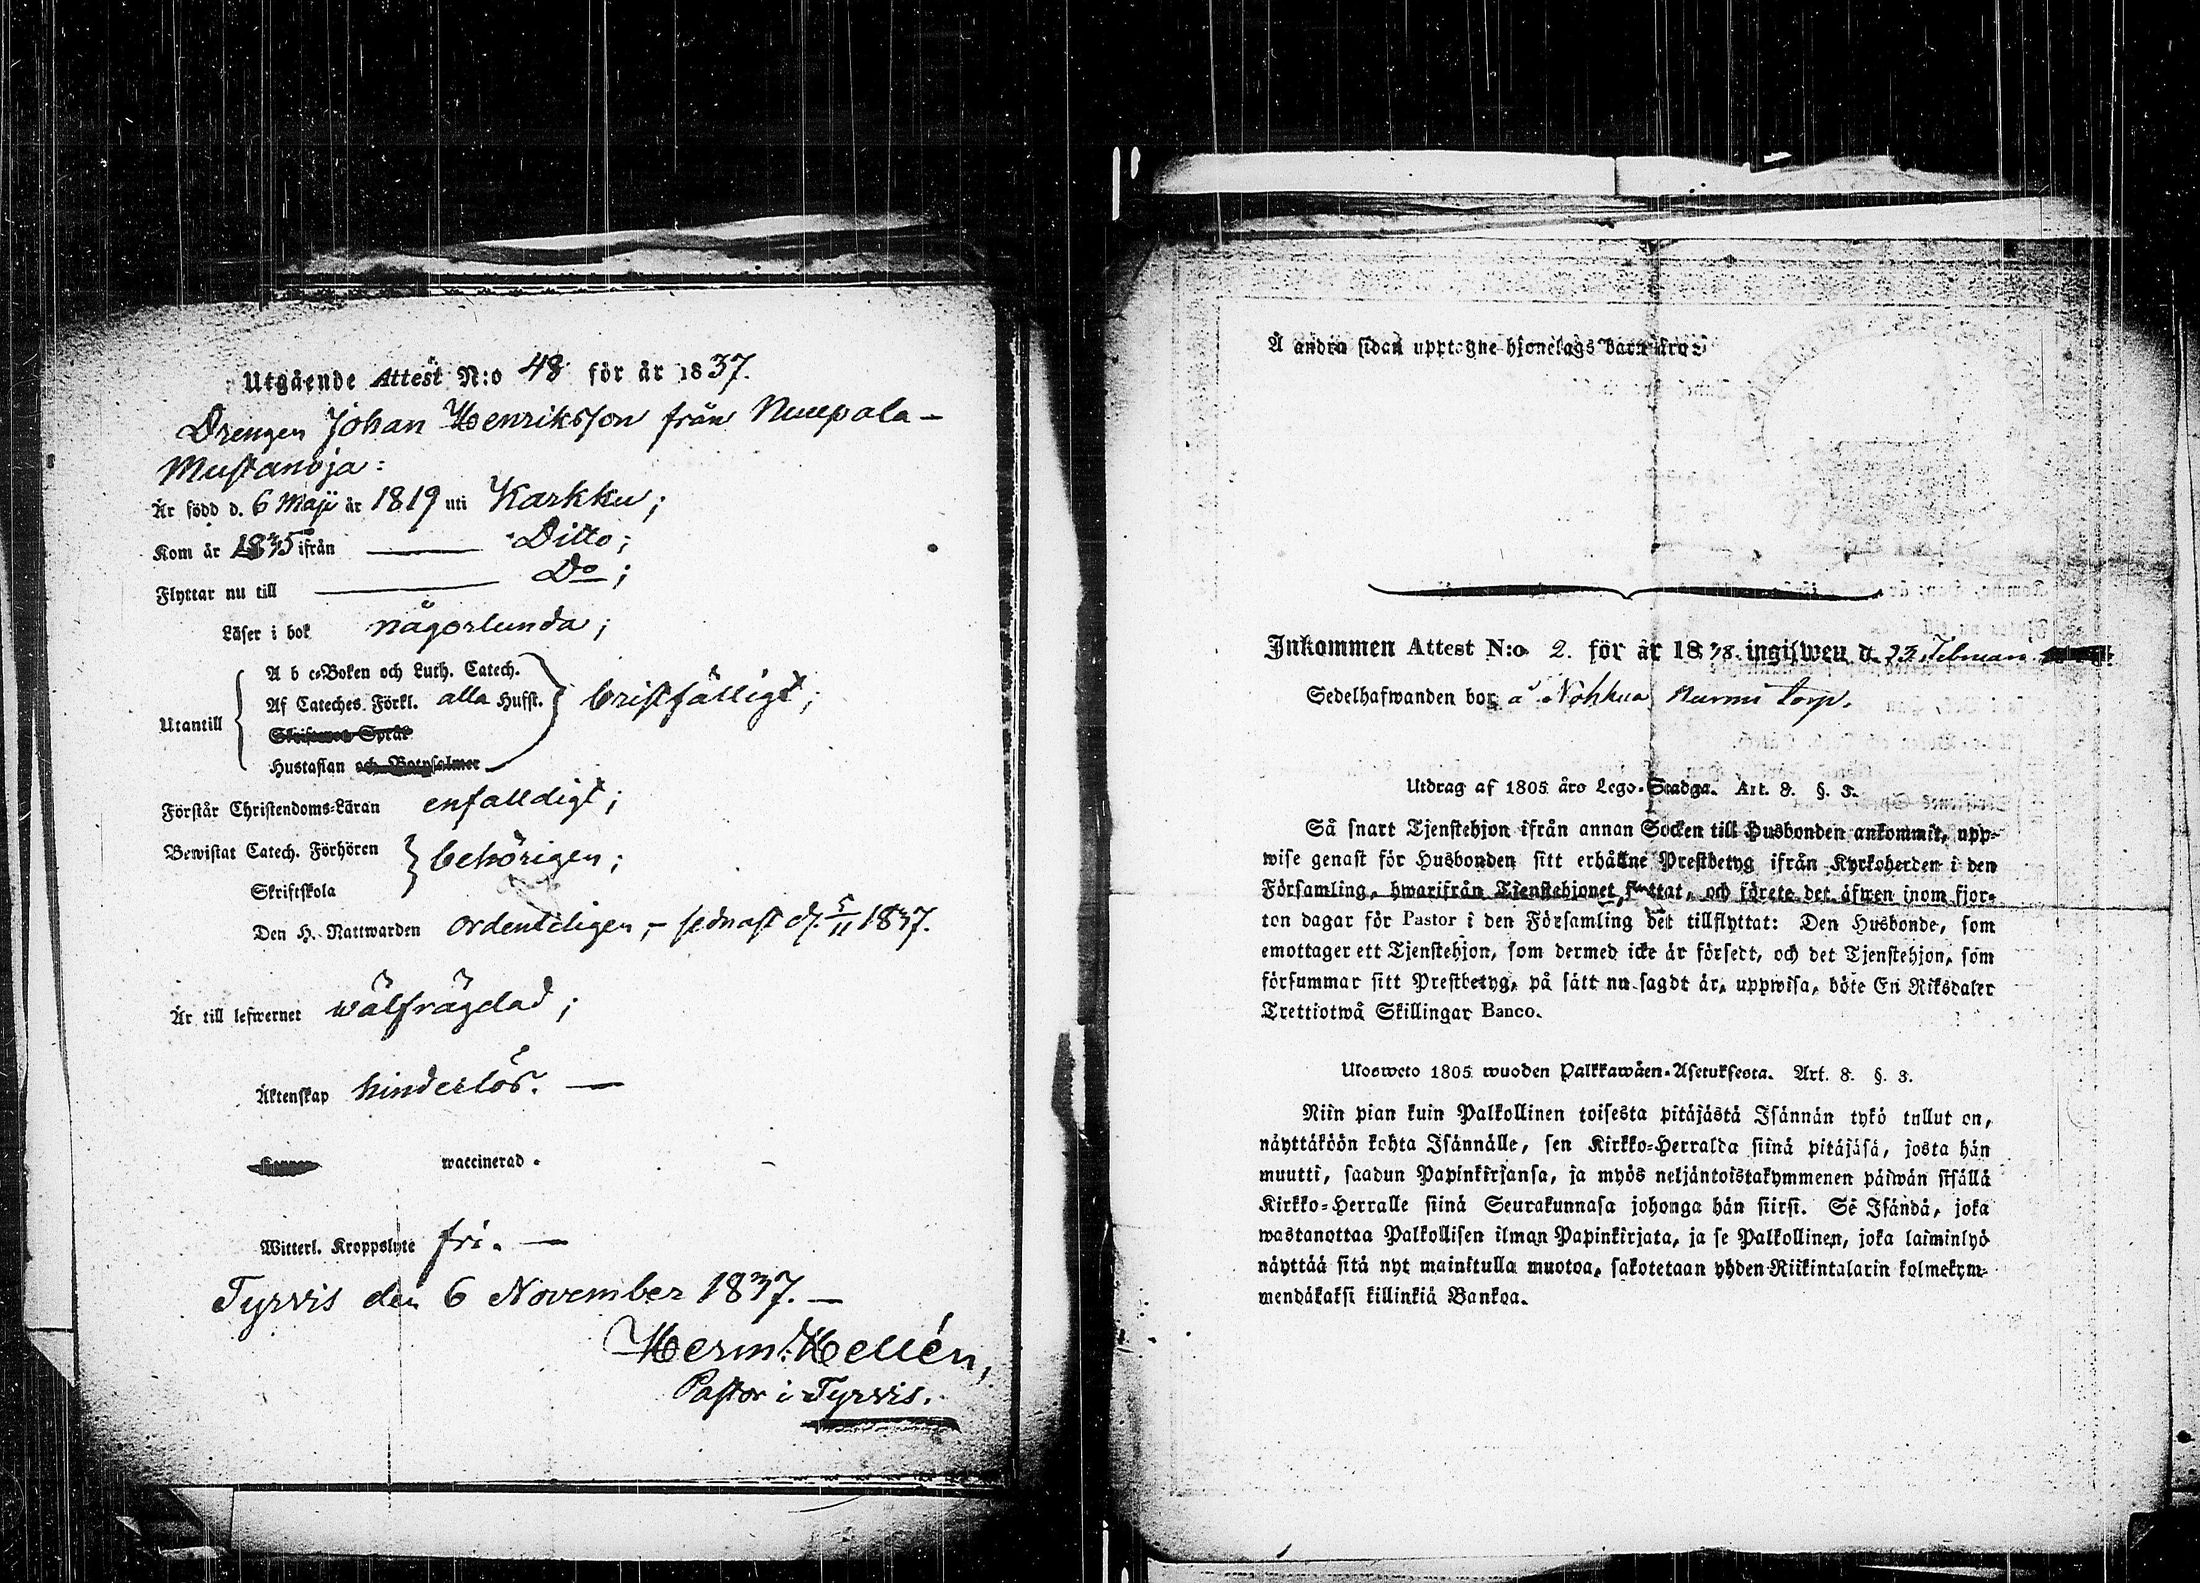 Utgående Attest N:o 48 för år 1837.
Drengen Johan Henriksson från Nuupala-
Mustanoja:
Är född d. 6 Maji år 1819 uti Karkku;
Kom år 1835 ifrån Ditto;
Flyttar nu till Do;
Läser i bok någorlunda;
A b c-Boken och Luth. Catech.
Utantill Af Cateches. Förkl. alla Hufst. bristfälligt;
Skriftenes Språk
Hustaflan och Botpsalmer
Förstår Christendoms-Läran enfaldigt;
Bewistat Catech. Förhören behörigen;
Skriftskola
Den H. Nattwarden ordenteligen, - sednast d. 5/11 1837.
Är till lefwernet wälfrägdad;
Äktenskap hinderlös. —
waccinerad.
Witterl. Kroppslyte fri. —
Tyrvis den 6 November 1837. —
Herm: Hellén,
Pastor i Tyrvis.
Å andra sidan upptagne hjonelags barn äro:
Inkommen Attest N:o 2. för år 1838. ingifwen d. 23 Februari
Sedelhafwanden bor å Nohkua Nurmi torp.
Utdrag af 1805 års Lego-Stadga. Art. 8. §. 3.
Så snart Tjenstehjon ifrån annan Socken till Husbonden ankommit, upp-
wise genast för Husbonden sitt erhållne Prestbetyg ifrån Kyrkoherden i den
Församling, hwarifrån Tjenstehjonet flyttat, och förete det äfwen inom fjor-
ton dagar för Pastor i den Församling det tillflyttat: Den Husbonde, som
emottager ett Tjenstehjon, som dermed icke är försedt, och det Tjenstehjon, som
försummar sitt Prestbetyg, på sätt nu sagdt är, uppwisa, böte En Riksdaler
Trettiotwå Skillingar Banco.
Utosweto 1805 wuoden Palkkawäen-Asetuksesta. Art. 8. §. 3.
Niin pian kuin Palkollinen toisesta pitäjästä Isännän tykö tullut on,
näyttäköön kohta Isännälle, sen Kirkko-Herralda siinä pitäjäsä, josta hän
muutti, saadun Papinkirjansa, ja myös neljäntoistakymmenen päiwän sisällä
Kirkko-Herralle siinä Seurakunnasa johonga hän siirsi. Se Isändä, joka
wastanottaa Palkollisen ilman Papinkirjata, ja se Palkollinen, joka laiminlyö
näyttää sitä nyt mainitulla muotoa, sakotetaan yhden Riikintalarin kolmekym-
mendäkaksi killinkiä Bankoa.